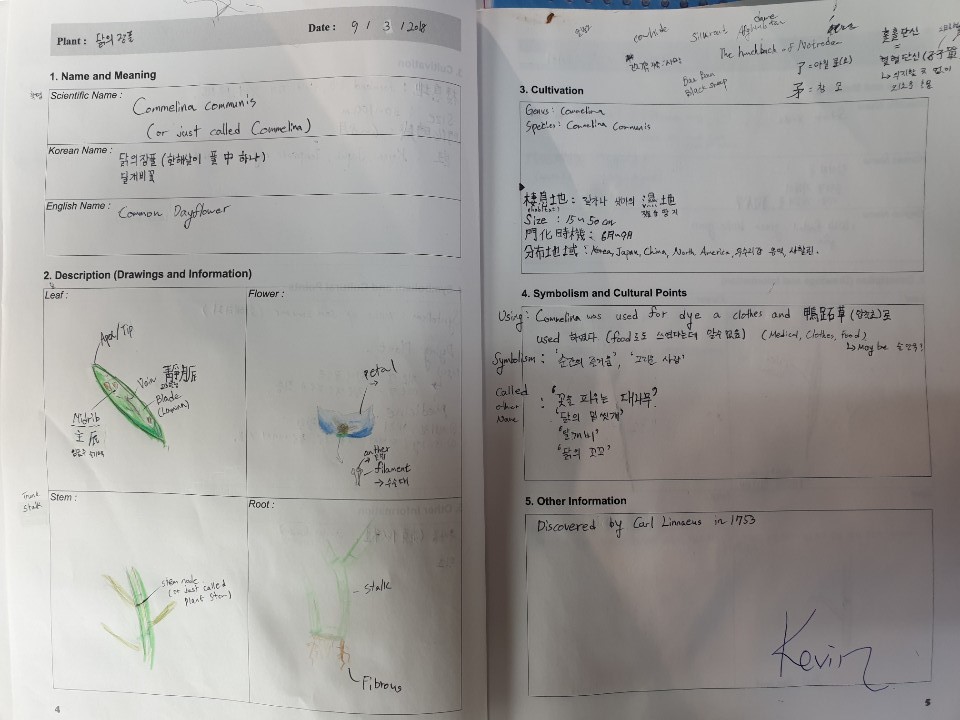 Plant : 닭의 장풀
Date : 9 / 3 / 2018
1. Name and Meaning
학명
Scientific Name :
Commelina communis
(or just called Commelina)
Korean Name :
닭의장풀 (한해살이 풀 中 하나)
달개비꽃
English Name :
Common Dayflower
2. Description (Drawings and Information)
Leaf :
Apex/Tip
Vein 靜脈
Blade
(Lamina)
Midrib
主脈
Flower :
petal
anther
filament
→ 수술대
Trunk
Stalk
Stem :
stem node
(or just called
Plant Stem)
Root :
stalk
Fibrous
4
outside
The hunchback of Notredam
Baa Baa
Black sheep
혈혈단신 (孑孑單
了 = 마칠 료(요)
矛 = 창 모
3. Cultivation
Genus: Commelina
Species: Commelina Communis
棲息地 : 길가나 냇가의 濕土地
(habitat)
Size : 15~50cm
開化時機 : 6月~9月
分布地域 : Korea, Japan, China, North America, 우수리강 유역, 사할린.
4. Symbolism and Cultural Points
Using : Commelina was used for dye a clothes and 鴨跖草 (압척초)로
used 하였다 (food로도 쓰였다는데 알 수 없음) (Medical, Clothes, Food)
↳ May be
Symbolism : '순간의 즐거움', '그리운 사랑'
Called
other
Name
: '꽃을 피우는 대나무'
'닭의 밑씻개'
'달개비'
'닭의 꼬꼬'
5. Other Information
Discovered by Carl Linnaeus in 1753
Kevin
5